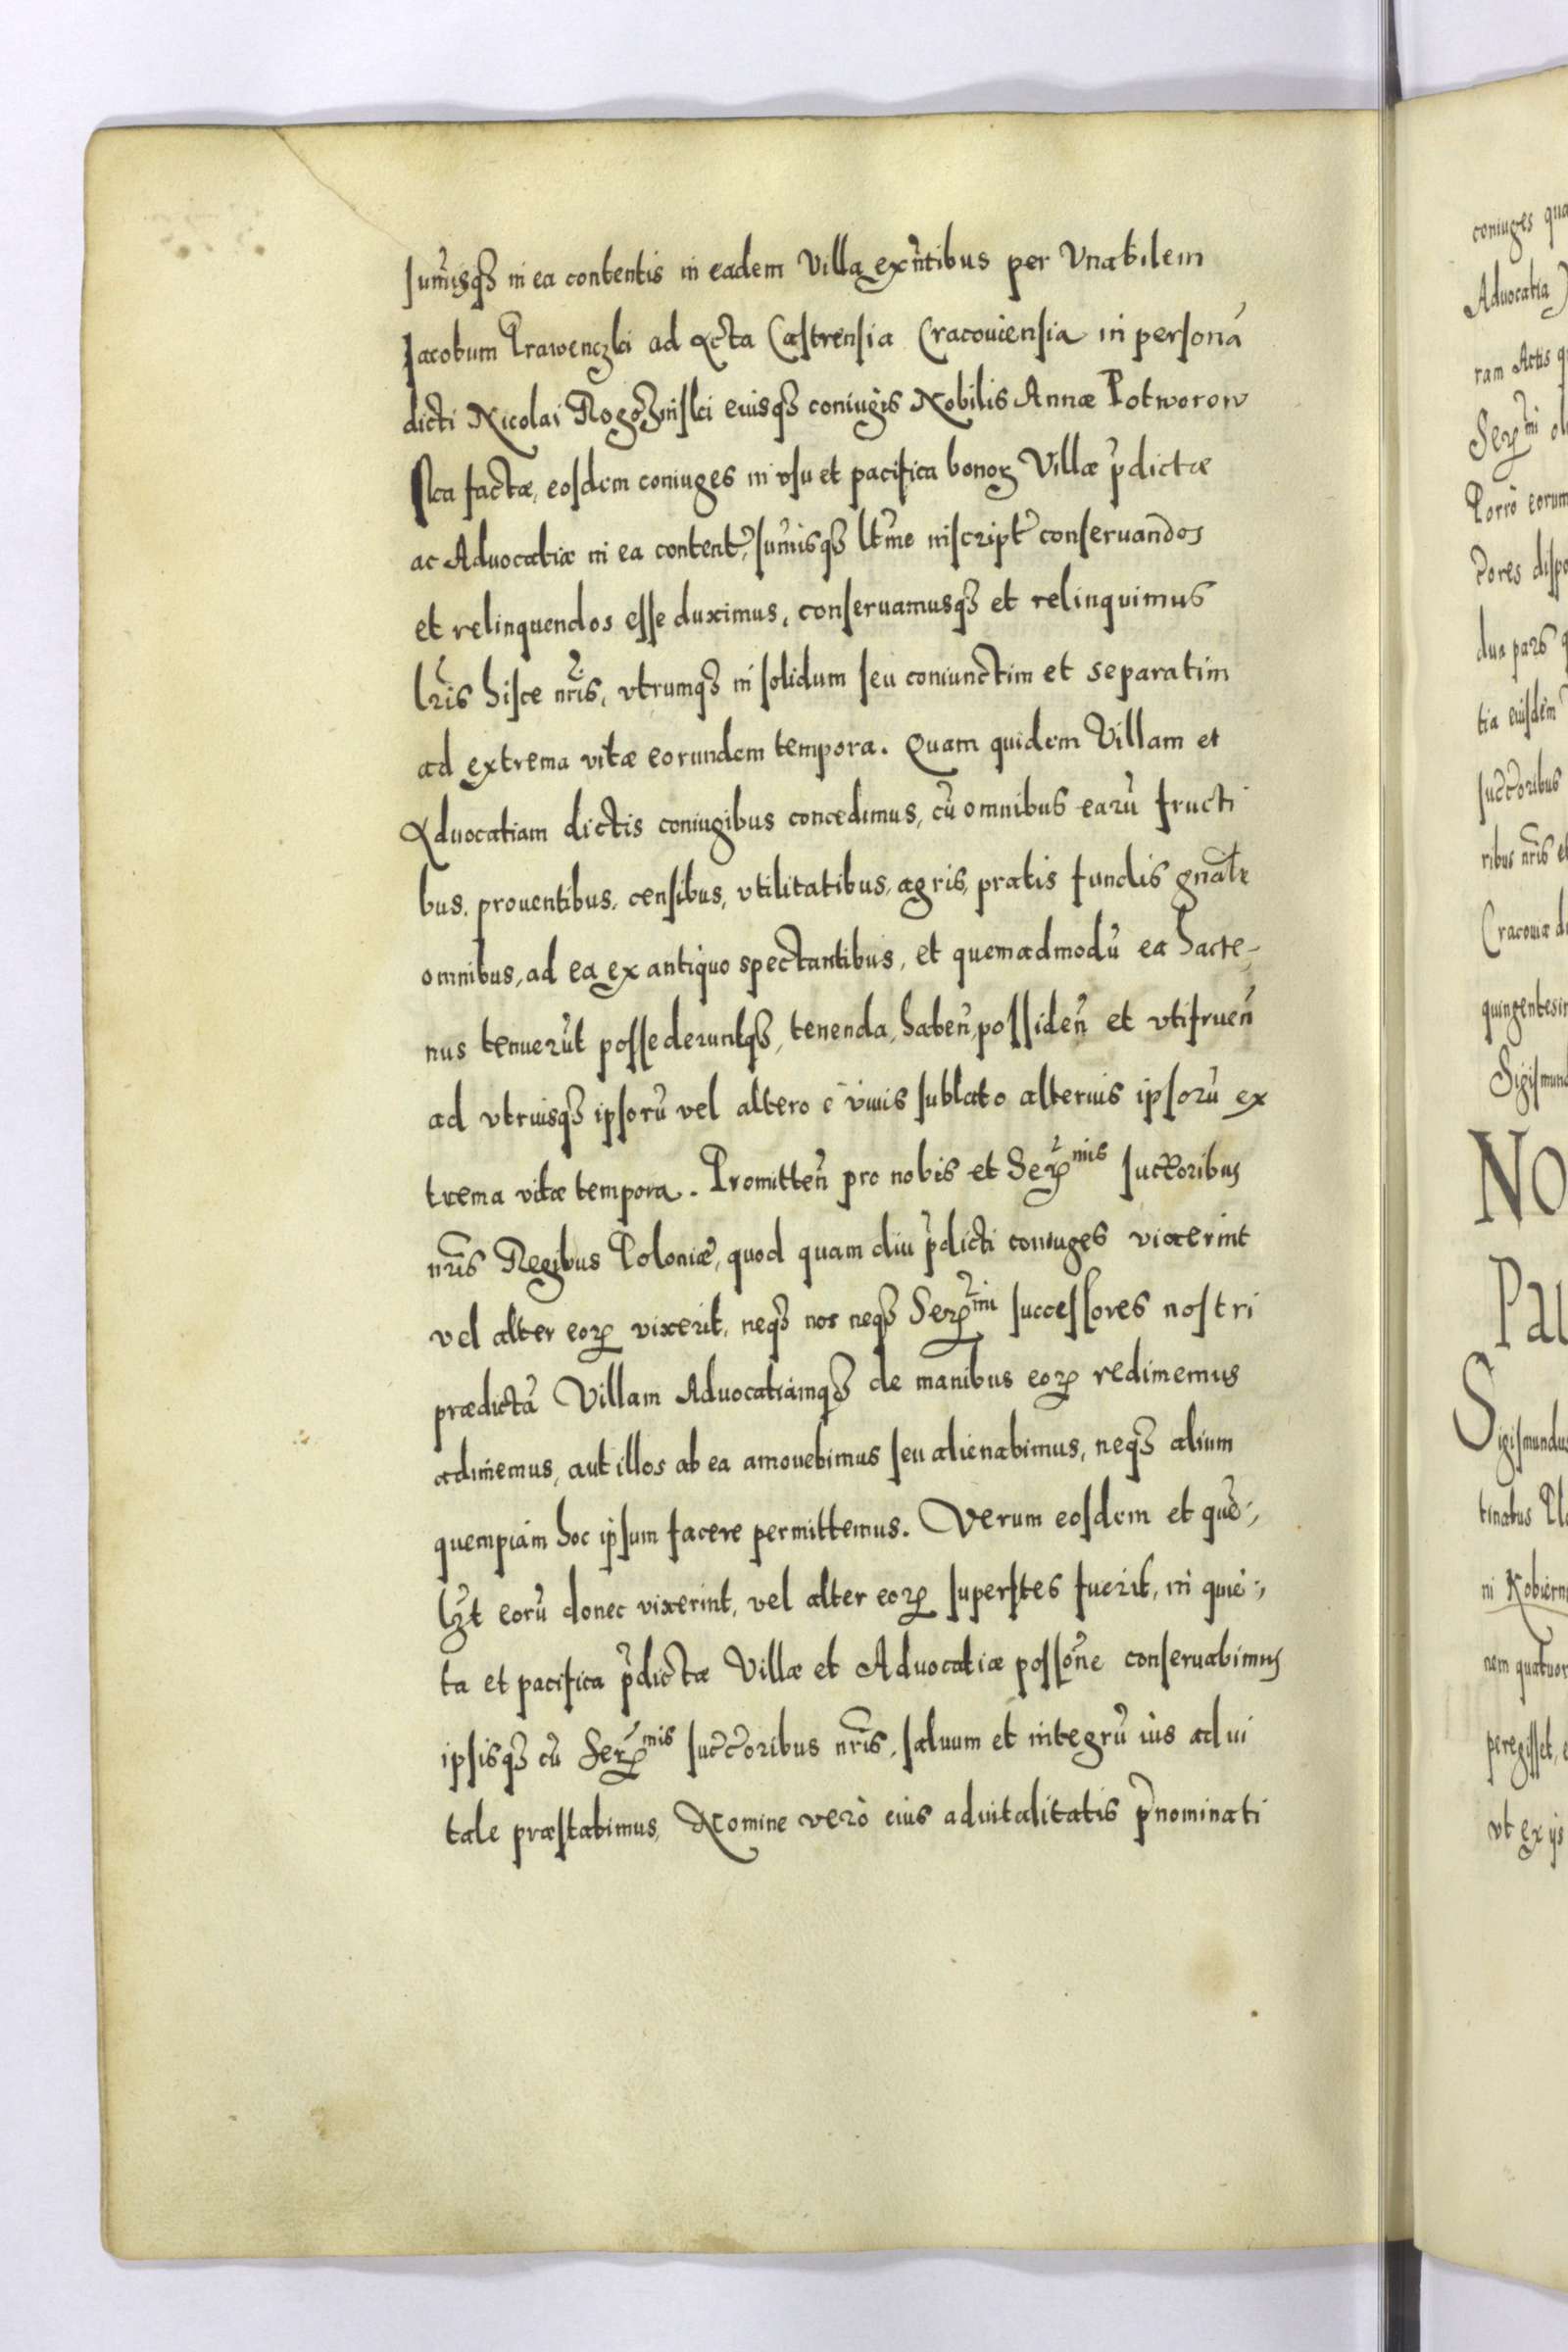 sum̃isq₃ in ea contentis in eadem Villa exñtibus per Vnabilem
Jacobum Krawenczki ad Acta Castrensia Cracouiensia in personã
dicti Nicolai Rogozinski eiusq₃ coniugis Nobilis Annæ Potworow
ska factæ, eosdem coniuges in vsu et pacifica bonoꝝ Villæ p̃dictæ
ac Aduocatiæ in ea content̃, sum̃isq₃ lr̃me inscript̃ conseruandos
et relinquendos esse duximus, conseruamusq₃ et relinquimus
lr̃is hisce nr̃is, vtrumq₃ in solidum seu coniunctim et separatim
ad extrema vitæ eorundem tempora. Quam quidem Villam et
Aduocatiam dictis coniugibus concedimus, cũ omnibus earũ fructi
bus, prouentibus, censibus, vtilitatibus, agris, pratis fundis gnałr
omnibus, ad ea ex antiquo spectantibus, et quemadmodũ ea hacte-
nus tenuerũt possederuntq₃, tenenda, habeñ, possideñ et vtifrueñ
ad vtriusq₃ ipsorũ vel altero è viuis sublato alterius ipsorũ ex
trema vitæ tempora. Promitteñ pro nobis et Serꝫ̃mis succ̃oribus
nr̃is Regibus Poloniæ, quod quam diu p̃dicti coniuges vixerint
vel alter eoꝝ vixerit, neq₃ nos neq₃ Serꝫ̃mi successores nostri
prædictã Villam Aduocatiamq₃ de manibus eoꝝ redimemus
adimemus, aut illos ab ea amouebimus seu alienabimus, neq₃ alium
quempiam hoc ipsum facere permittemus. Verum eosdem et quẽ-,
lꝫt eorũ donec vixerint, vel alter eoꝝ superstes fuerit, in quie-,
ta et pacifica p̃dictæ Villæ et Aduocatiæ possõne conseruabimus
ipsisq₃ cũ Serꝫ̃mis succ̃oribus nr̃is, saluum et integrũ iùs adui
tale præstabimus, Nomine verò eius aduitalitatis p̃nominati
coniuges qua
Aduocatia
ram Actis q
Serꝫ̃mi ol
Porrò eorum
c̃ores dispo
dua pars q
tia eiusdem
succ̃oribus
ribus nr̃is et
Cracouiæ d
quingentesi
Sigismund
NO
PAU
Sigismundus
tinatus Pl
ni Kobiern
nem quatuor
peregisset, e
vt ex ijs